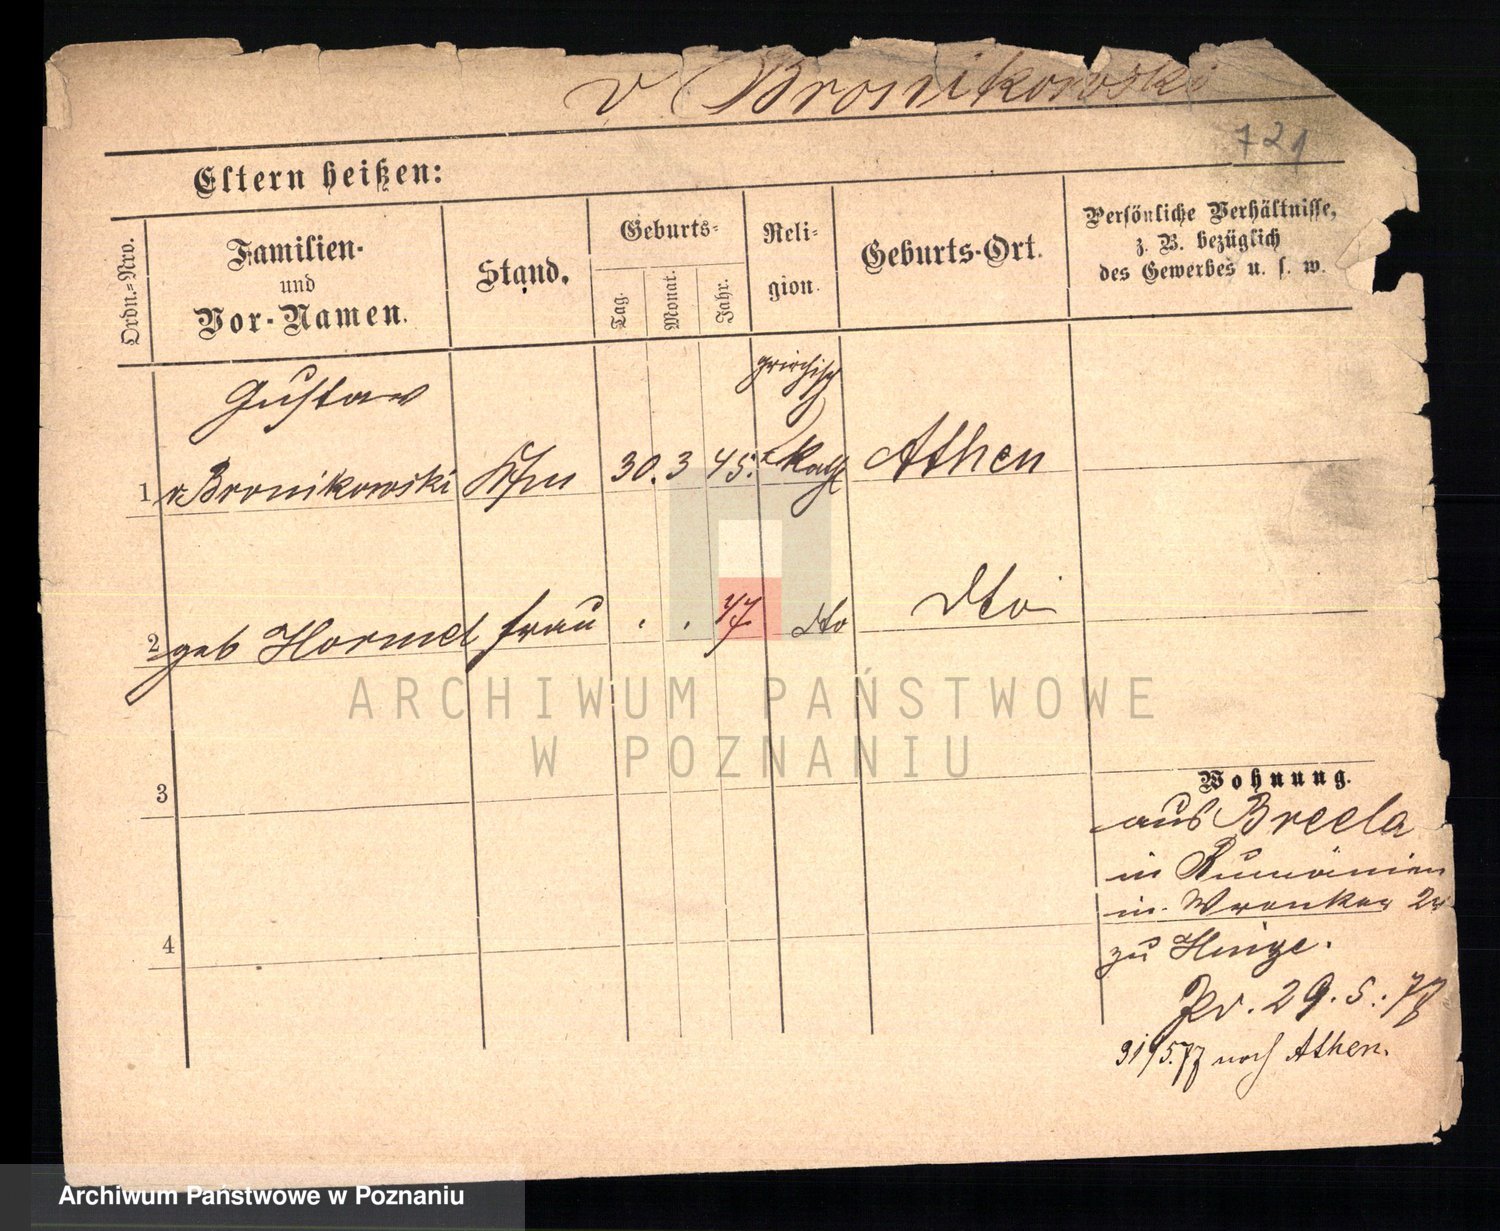 v Bronikowski
721
Eltern heißen:
Ordn.-Nro.
Familien-
und
Vor-Namen.
Stand.
Geburts-
Tag.
Monat.
Jahr.
Reli-
gion.
Geburts-Ort.
Persönliche Verhältnisse,
z. B. bezüglich
des Gewerbes u. s. w.
Gustav griechisch
1 v. Bronikowski Kfm 30. 3 45. kath Athen
2 geb Hormel Frau . . 47 dto dto
3
4
Wohnung.
aus Breela
in Rumänien
in Wronker
zu
Pr. 29. 5. 77
31/5.77 nach Athen.
ARCHIWUM PAŃSTWOWE
W POZNANIU
Archiwum Państwowe w Poznaniu